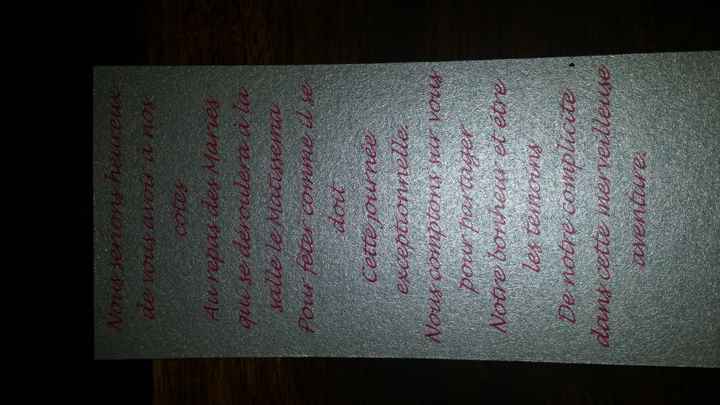 Nous serions heureux
de vous avoir à nos
côtés
Au repas des Mariés
qui se déroulera à la
salle le Matissema
Pour fêter comme il se
doit
Cette journée
exceptionnelle.
Nous comptons sur vous
pour partager
Notre bonheur et être
les témoins
De notre complicité
dans cette merveilleuse
aventure.